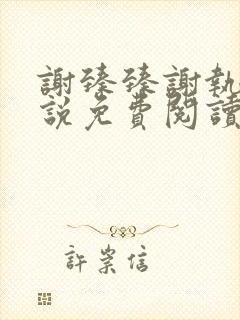 謝臻臻謝執
說免費閱讀
許崇信